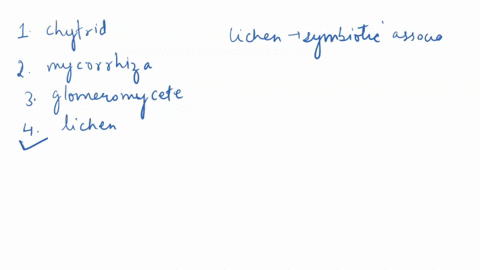 1. chytrid
2. mycorrhiza
3. glomeromycete
4. lichen
lichen → symbiotic assoc